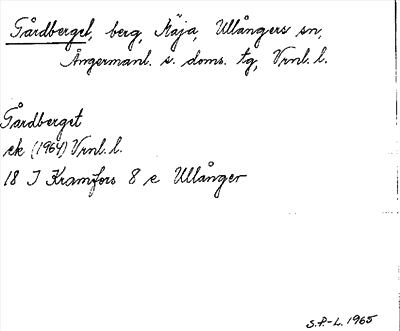 Gårdberget, berg, Käja, Ullångers sn,
Ångermanl. s. doms. tg, Vrnl. l.
Gårdberget
ek (1964) Vrnl. l.
18 I Kramfors 8 e Ullånger
S.P.-L. 1965